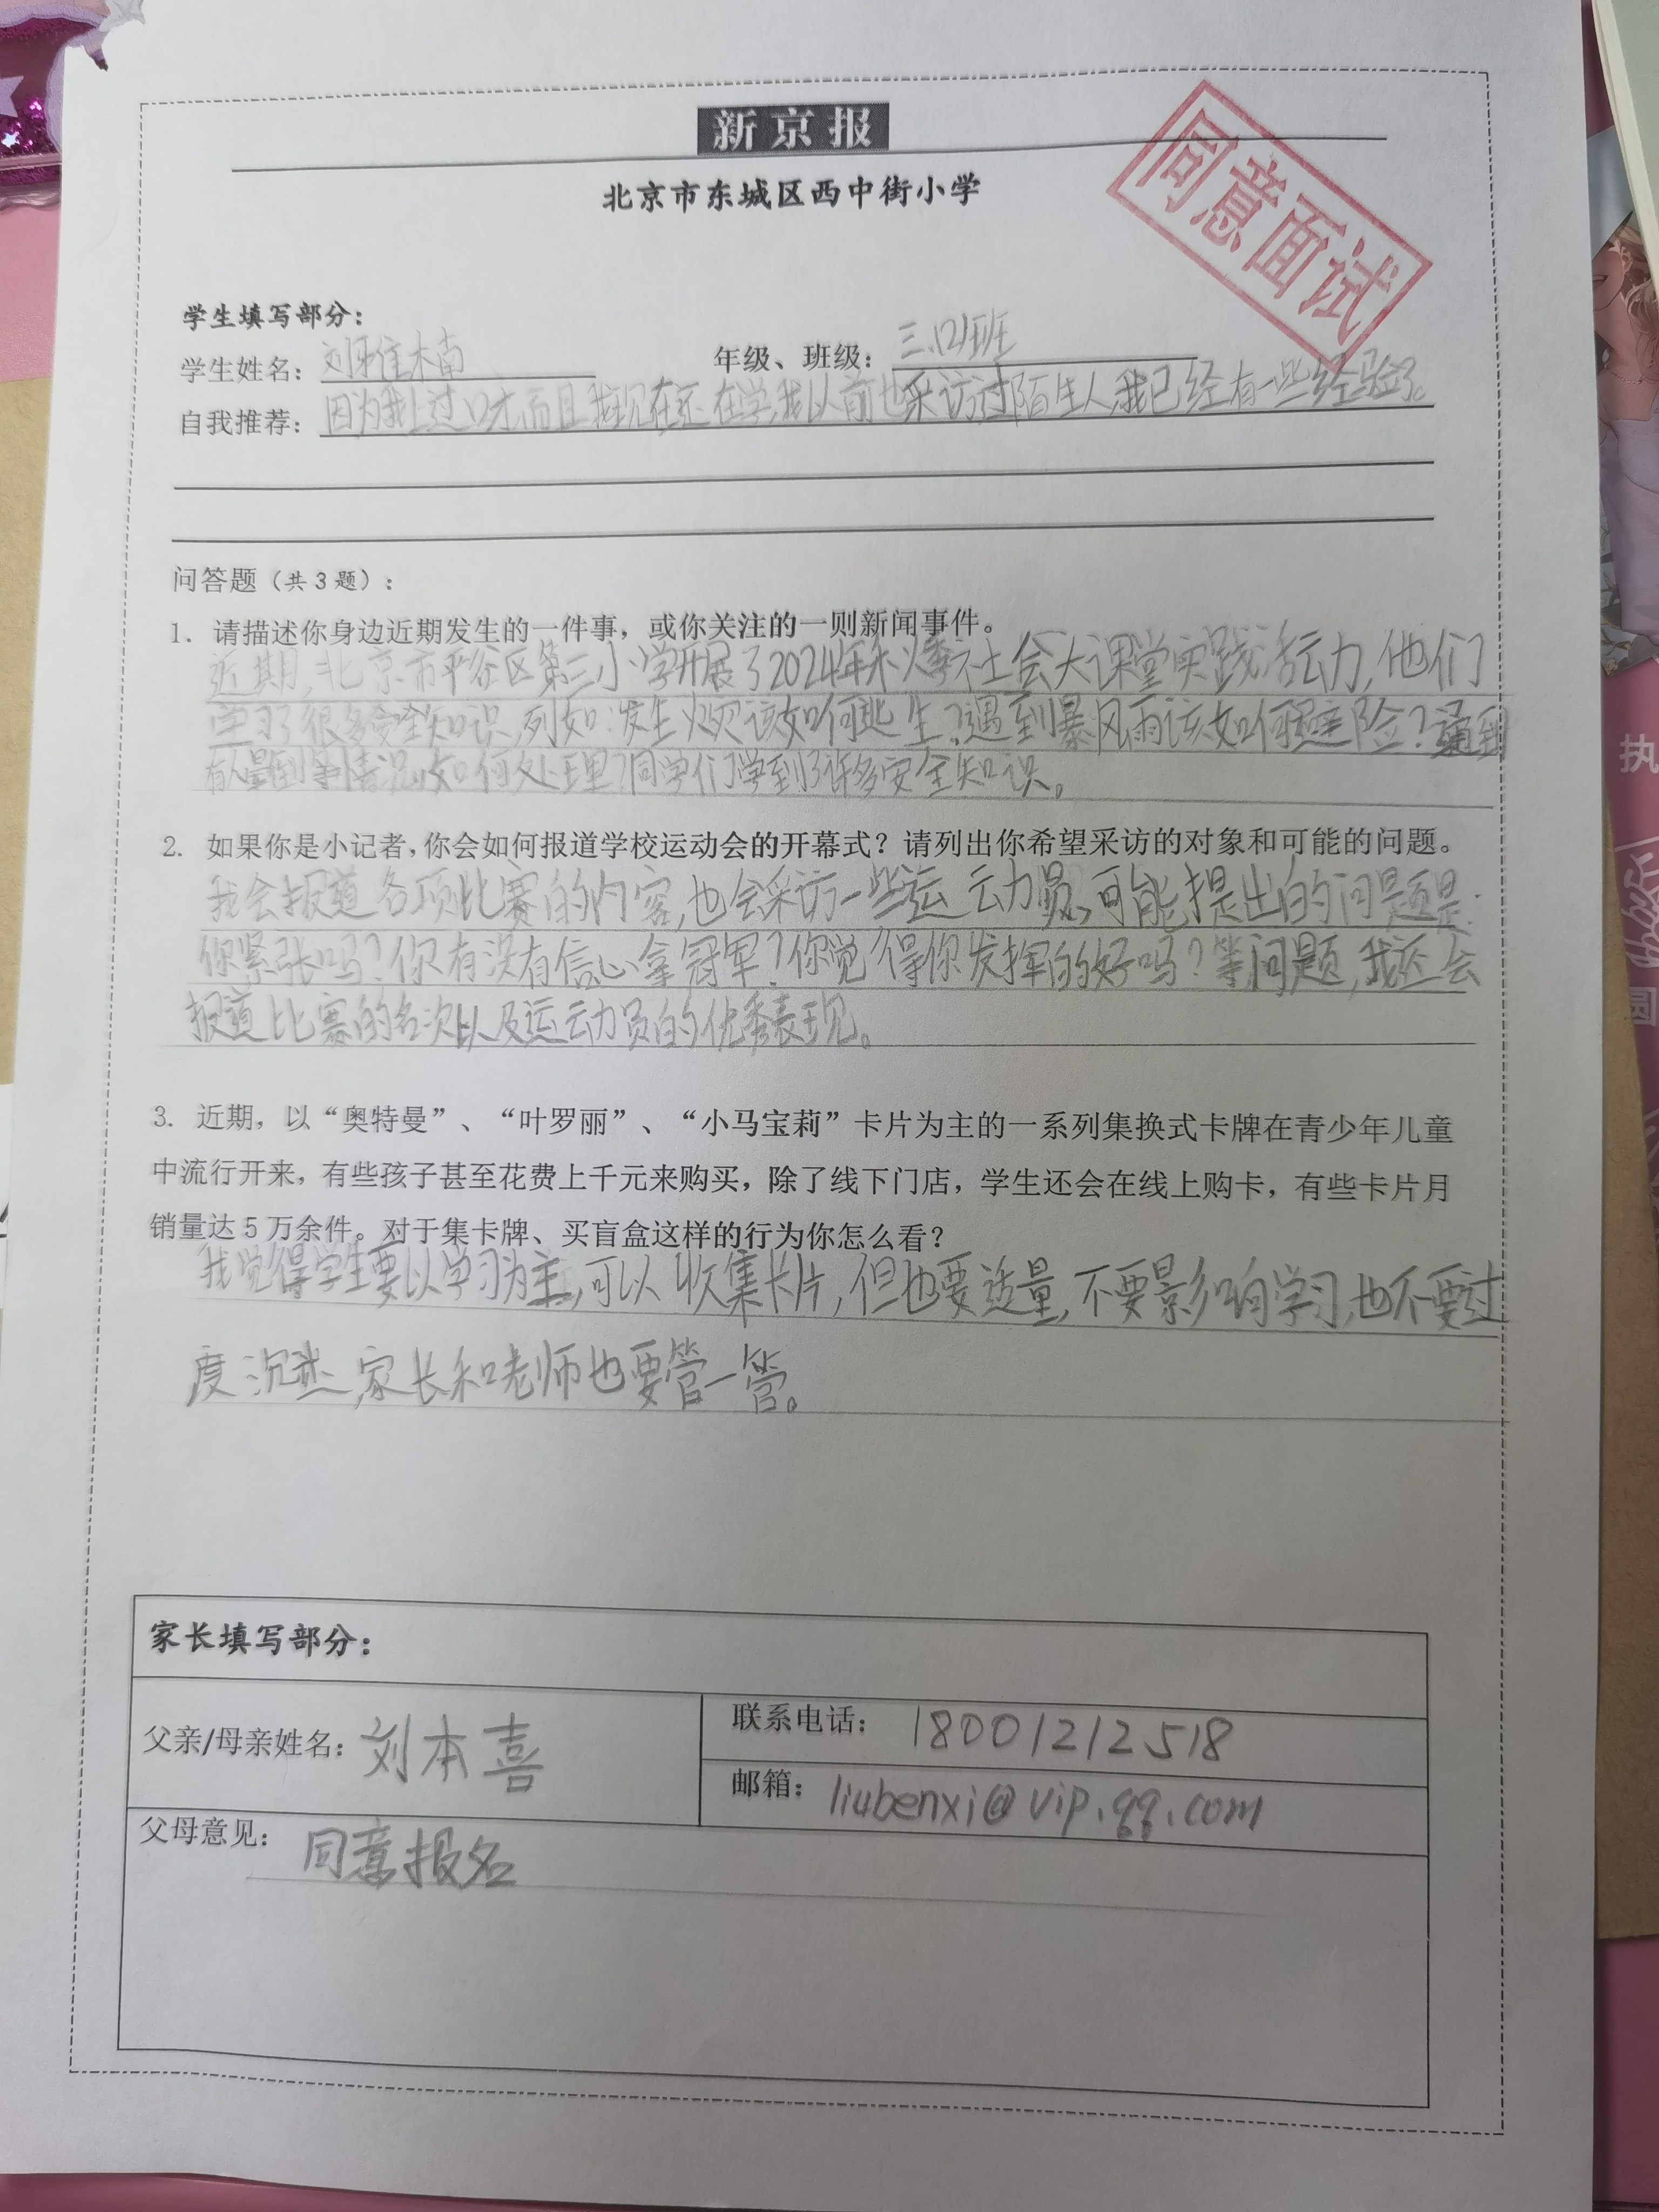 新京报
北京市东城区西中街小学
同意面试
学生填写部分：
学生姓名：刘雅楠 年级、班级：三、(2)班
自我推荐：因为我上过口才,而且我现在还在学,我以前也采访过陌生人,我已经有一些经验了。
问答题（共3题）：
1. 请描述你身边近期发生的一件事，或你关注的一则新闻事件。
近期,北京市平谷区第三小学开展了2024年秋季社会大课堂实践活动,他们
学习了很多安全知识,列如:发生火灾该如何逃生?遇到暴风雨该如何避险?遇到
有人晕倒等情况如何处理?同学们学到了许多安全知识。
2. 如果你是小记者，你会如何报道学校运动会的开幕式？请列出你希望采访的对象和可能的问题。
我会报道各项比赛的内容,也会采访一些运动员,可能提出的问题是:
你紧张吗?你有没有信心拿冠军?你觉得你发挥的好吗?等问题,我还会
报道比赛的名次以及运动员的优秀表现。
3. 近期，以“奥特曼”、“叶罗丽”、“小马宝莉”卡片为主的一系列集换式卡牌在青少年儿童
中流行开来，有些孩子甚至花费上千元来购买，除了线下门店，学生还会在线上购卡，有些卡片月
销量达5万余件。对于集卡牌、买盲盒这样的行为你怎么看？
我觉得学生要以学习为主,可以收集卡片,但也要适量,不要影响学习,也不要过
度沉迷,家长和老师也要管一管。
家长填写部分：
父亲/母亲姓名：刘本喜
联系电话：18001212518
邮箱：liubenxi@vip.qq.com
父母意见：同意报名
执
园